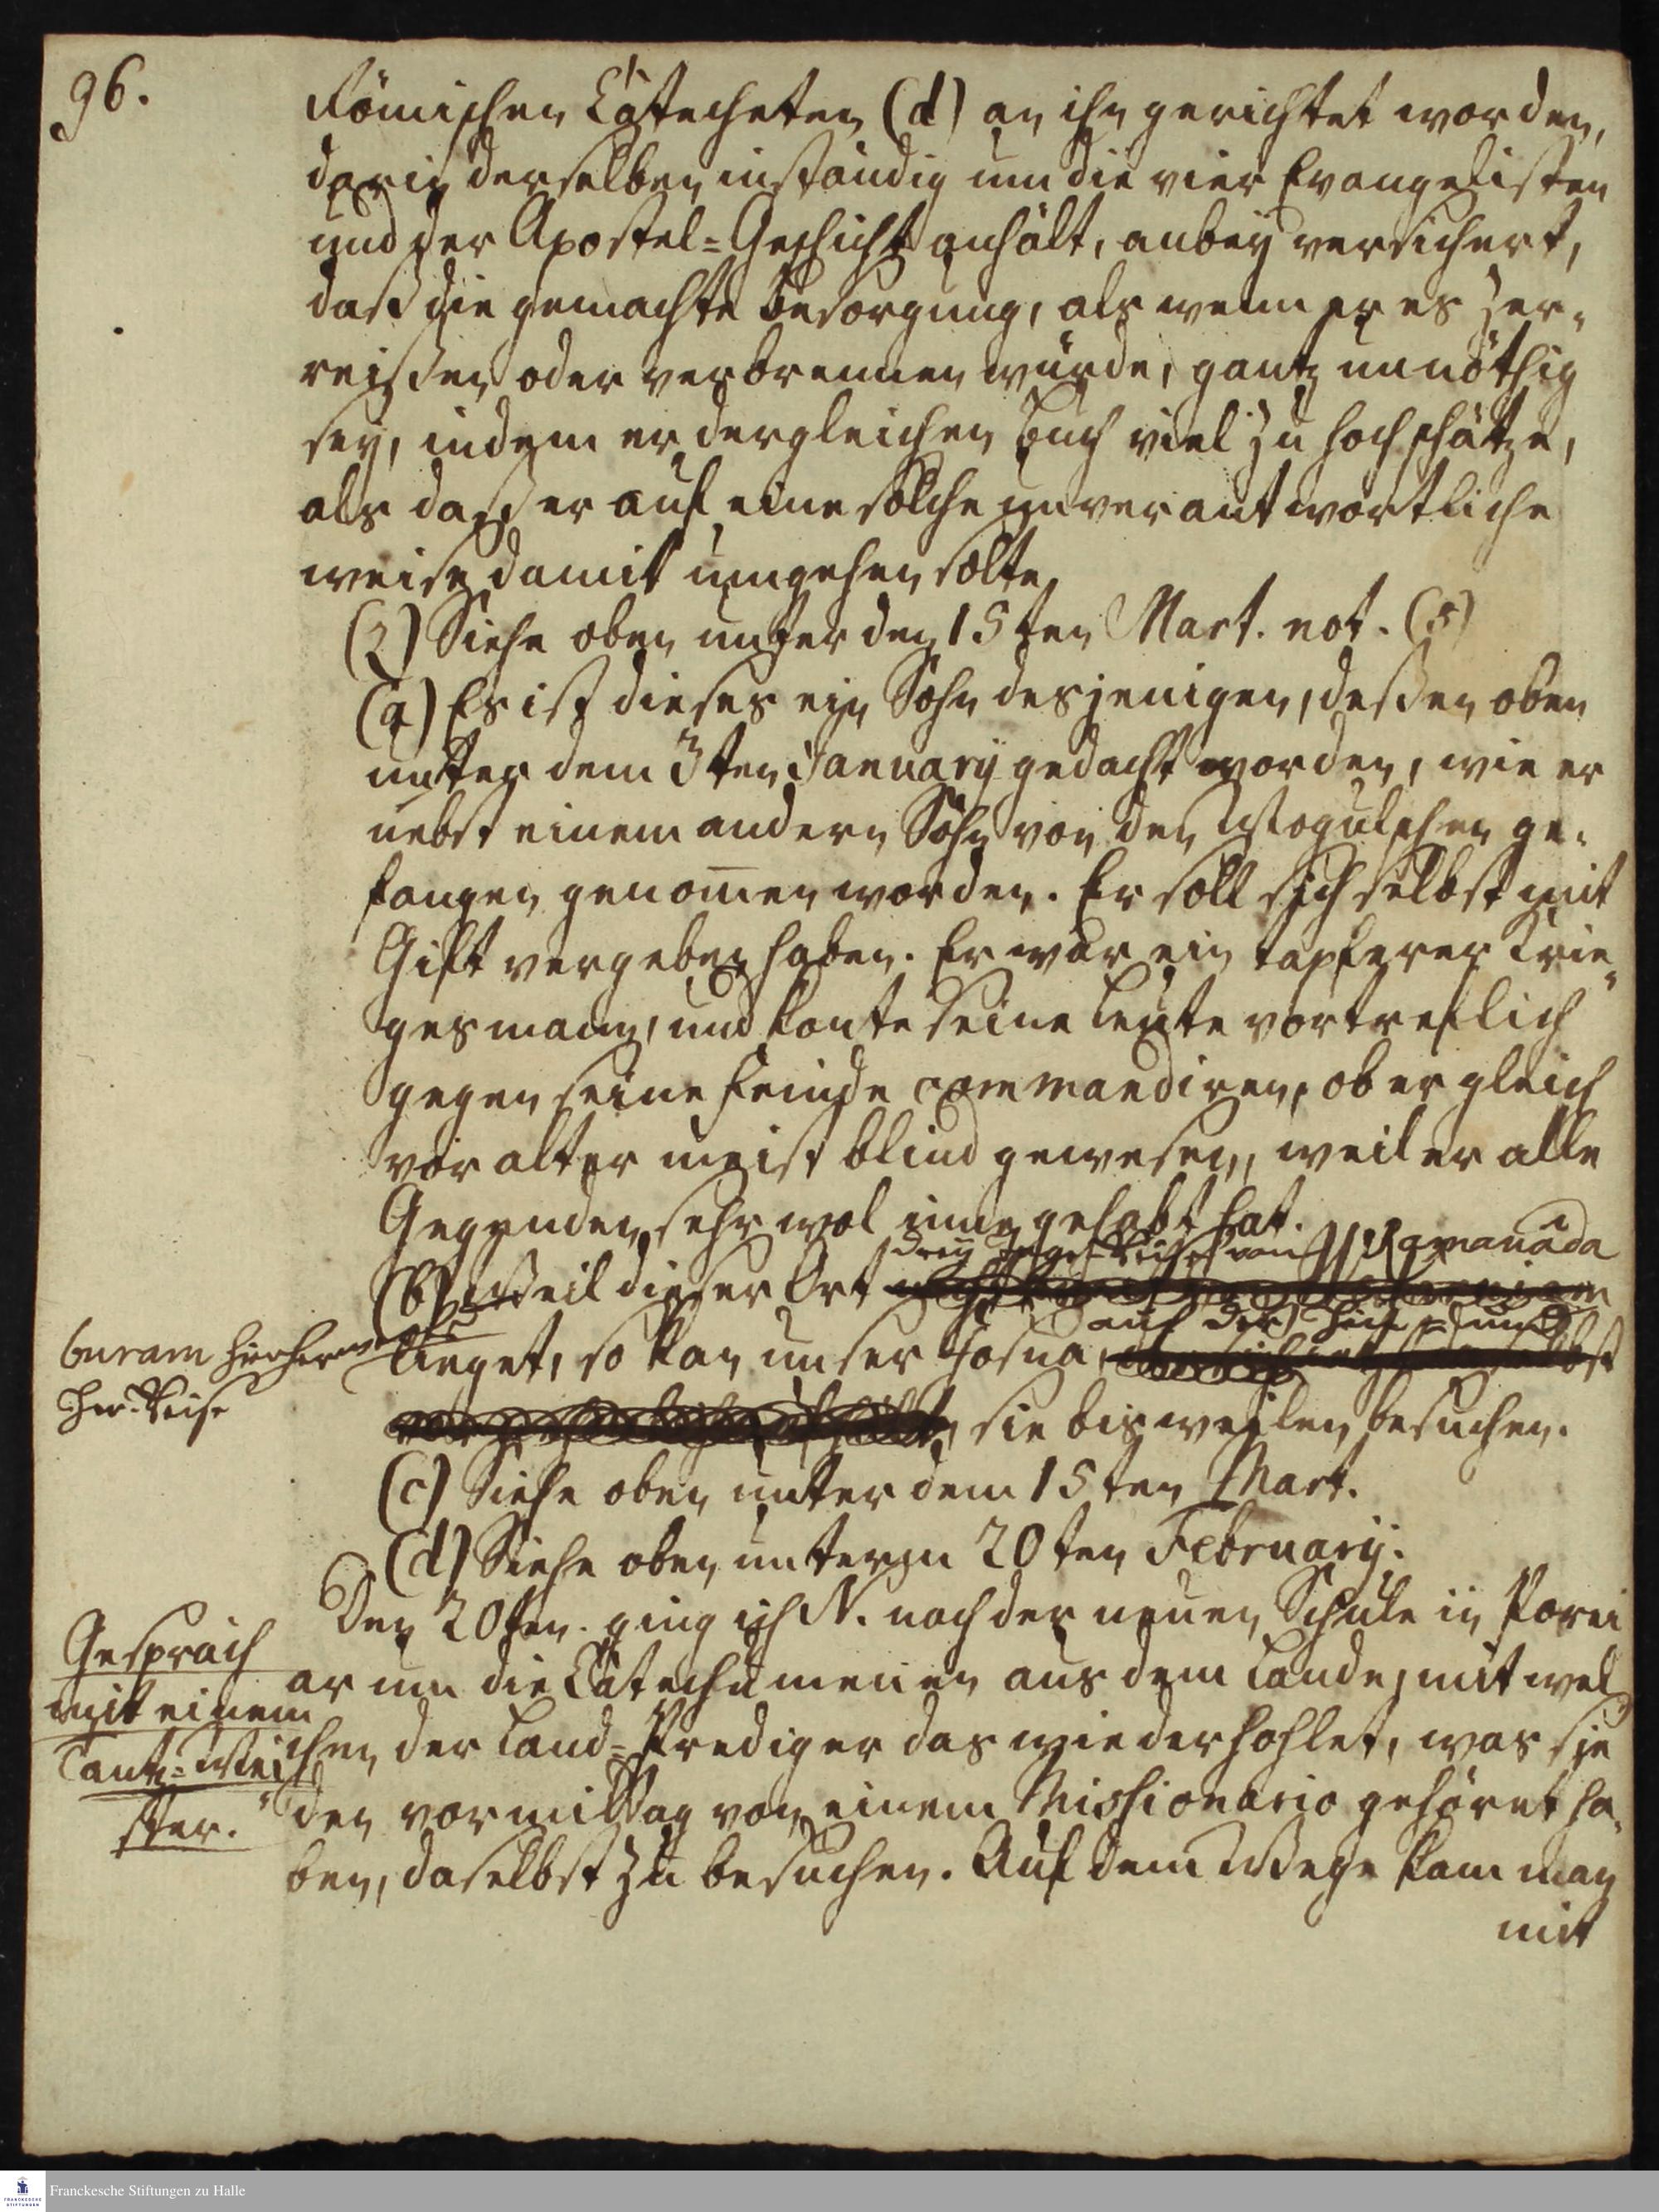 96.
Römischen Catecheten (d) an ihn gerichtet worden,
darin derselben inständig um die vier Evangelisten
und der Apostel=Geschicht anhält, anbey versichert,
daß die gemachte Besorgung, als wenn er es zer-
reißen oder verbrennen würde, gantz unnöthig
sey, indem er dergleichen Buch viel zu hoch schätze,
als daß er auf eine solche unverantwortliche
weise damit umgehen solte.
(z) Siehe oben unter den 15ten Mart. not.
(a) Es ist dieses ein Sohn desjenigen, deßen oben
unter dem 3ten January gedacht worden, wie er
nebst einem andern Sohn von den Mogulschen ge-
fangen genom̄en worden. Er soll sich selbst mit
Gift vergeben haben. Er war ein tapferer Krie-
gesmann, und konte seine Leute vortreflich
gegen seine Feinde commandiren, ob er gleich
vor alter meist blind gewesen, weil er alle
Gegenden sehr wol inne gehabt hat.
drey Tage=Reise von Ramanada
(b) Weil dieser Ort
buram
auf der hin= und
lieget, so kan unser Josua
her=Reise
sie bisweilen besuchen.
(c) Siehe oben unter dem 15ten Mart.
(d) Siehe oben unterm 20ten February.
Gespräch
mit einem
Tantz=Mei-
ster.
Den 20ten. ging ich N. nach der neuen Schule in Porei
ar um die Catechumenen aus dem Lande, mit wel
chen der Land=Prediger das wiederhohlet, was sie
den vormittag von einem Missionario gehöret ha-
ben, daselbst zu besuchen. Auf dem Wege kam man
mit
Franckesche Stiftungen zu Halle